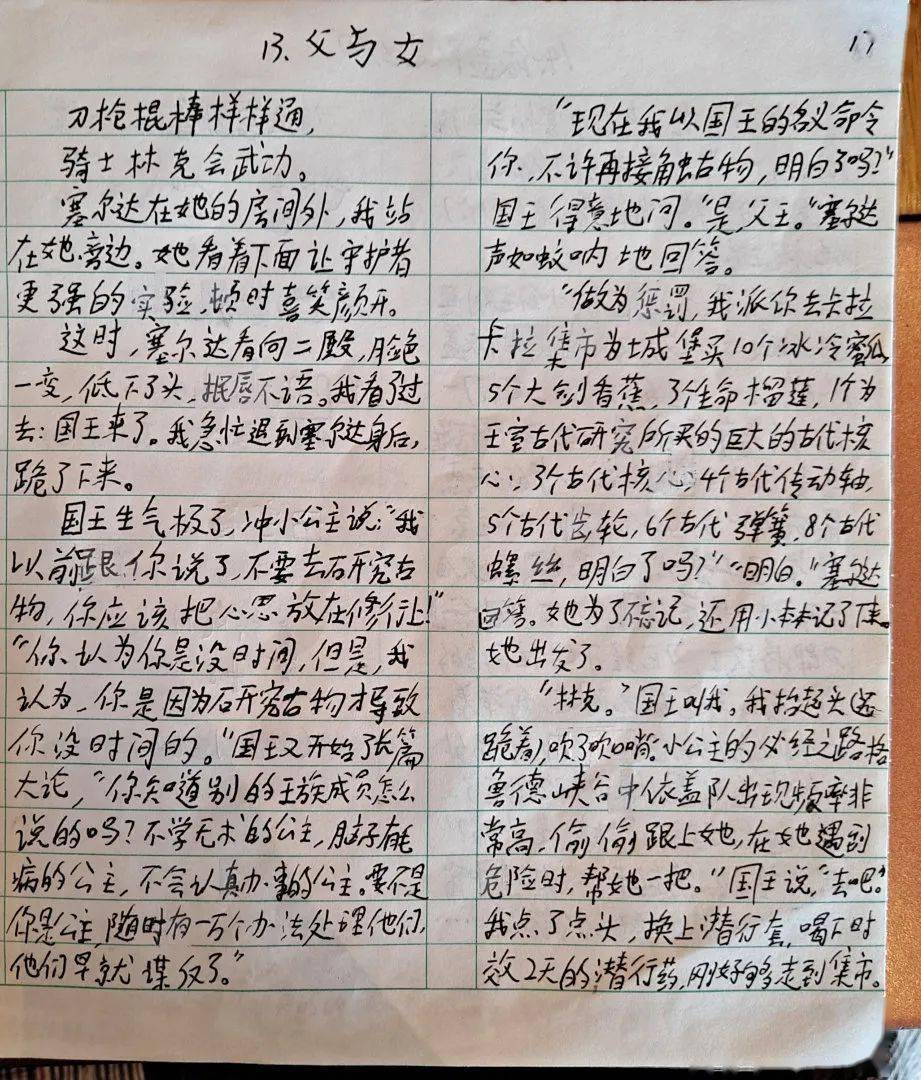 13、父与女
17
刀枪棍棒样样通，
骑士林克会武功。
塞尔达在她的房间外，我站
在她旁边。她看着下面让守护者
更强的实验，顿时喜笑颜开。
这时，塞尔达看向二殿，脸色
一变，低下了头，抿唇不语。我看了过
去：国王来了。我急忙退到塞尔达身后，
跪了下来。
国王生气极了，冲小公主说：“我
以前跟你说了，不要去研究古
物，你应该把心思放在修行上！”
“你认为你是没时间，但是，我
认为，你是因为研究古物才导致
你没时间的。”国王又开始了长篇
大论，“你知道别的王族成员怎么
说的吗？不学无术的公主，脑子有
病的公主，不会认真办事的公主。要不是
你是公主，随时有一万个办法处理他们，
他们早就谋反了。”
“现在我以国王的名义命令
你，不许再接触古物，明白了吗？”
国王得意地问。“是，父王。”塞尔达
声如蚊呐地回答。
“做为惩罚，我派你去卡拉
卡拉集市为城堡买10个冰冷蜜瓜，
5个大剑香蕉，3个生命榴莲，1个为
王室古代研究所买的巨大的古代核
心，3个古代核心，4个古代传动轴，
5个古代齿轮，6个古代弹簧，8个古代
螺丝，明白了吗？”“明白。”塞尔达
回答。她为了不忘记，还用小本本记了下来。
她出发了。
“林克。”国王叫我，我抬起头还
跪着，吹了吹口哨。“小公主的必经之路格
鲁德峡谷中依盖队出现频率非
常高，偷偷跟上她，在她遇到
危险时，帮她一把。”国王说，“去吧。”
我点了点头，换上潜行套，喝下时
效2天的潜行药，刚好够走到集市。